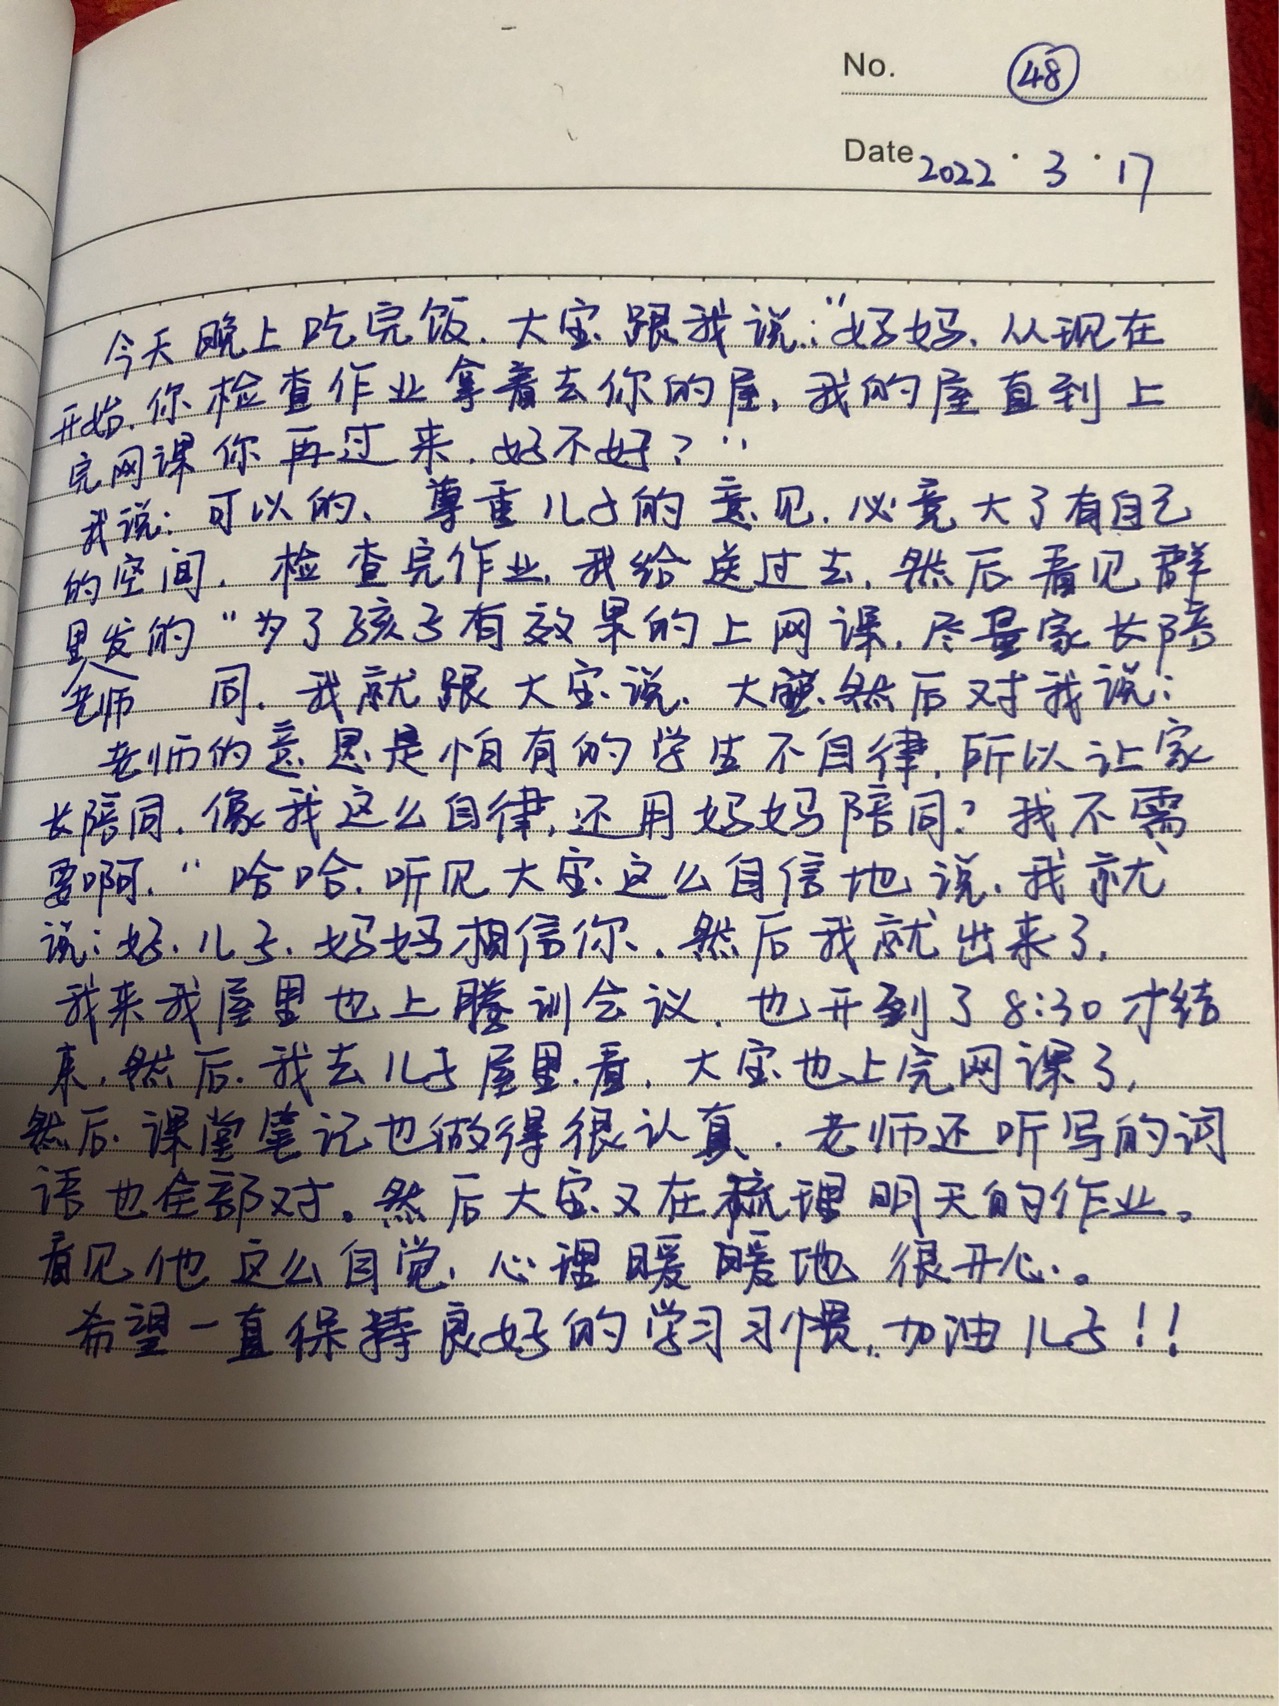 No. 48
Date 2022 · 3 · 17
今天晚上吃完饭，大宝跟我说：“好妈，从现在
开始，你检查作业拿着去你的屋，我的屋直到上
完网课你再过来，好不好？”
我说：可以的、尊重儿子的意见，必竟大了有自己
的空间，检查完作业，我给送过去，然后看见群
里发的“为了孩子有效果的上网课，尽量家长陪
老师 同，我就跟大宝说，大宝然后对我说：
老师的意思是怕有的学生不自律，所以让家
长陪同，像我这么自律，还用妈妈陪同？我不需
要啊，“哈哈，听见大宝这么自信地说，我就
说：好，儿子，妈妈相信你，然后我就出来了，
我来我屋里也上腾训会议，也开到了8:30才结
束，然后，我去儿子屋里看，大宝也上完网课了，
然后课堂笔记也做得很认真，老师还听写的词
语也全部对。然后大宝又在梳理明天的作业。
看见他这么自觉，心理暖暖地很开心。
希望一直保持良好的学习习惯，加油儿子！！